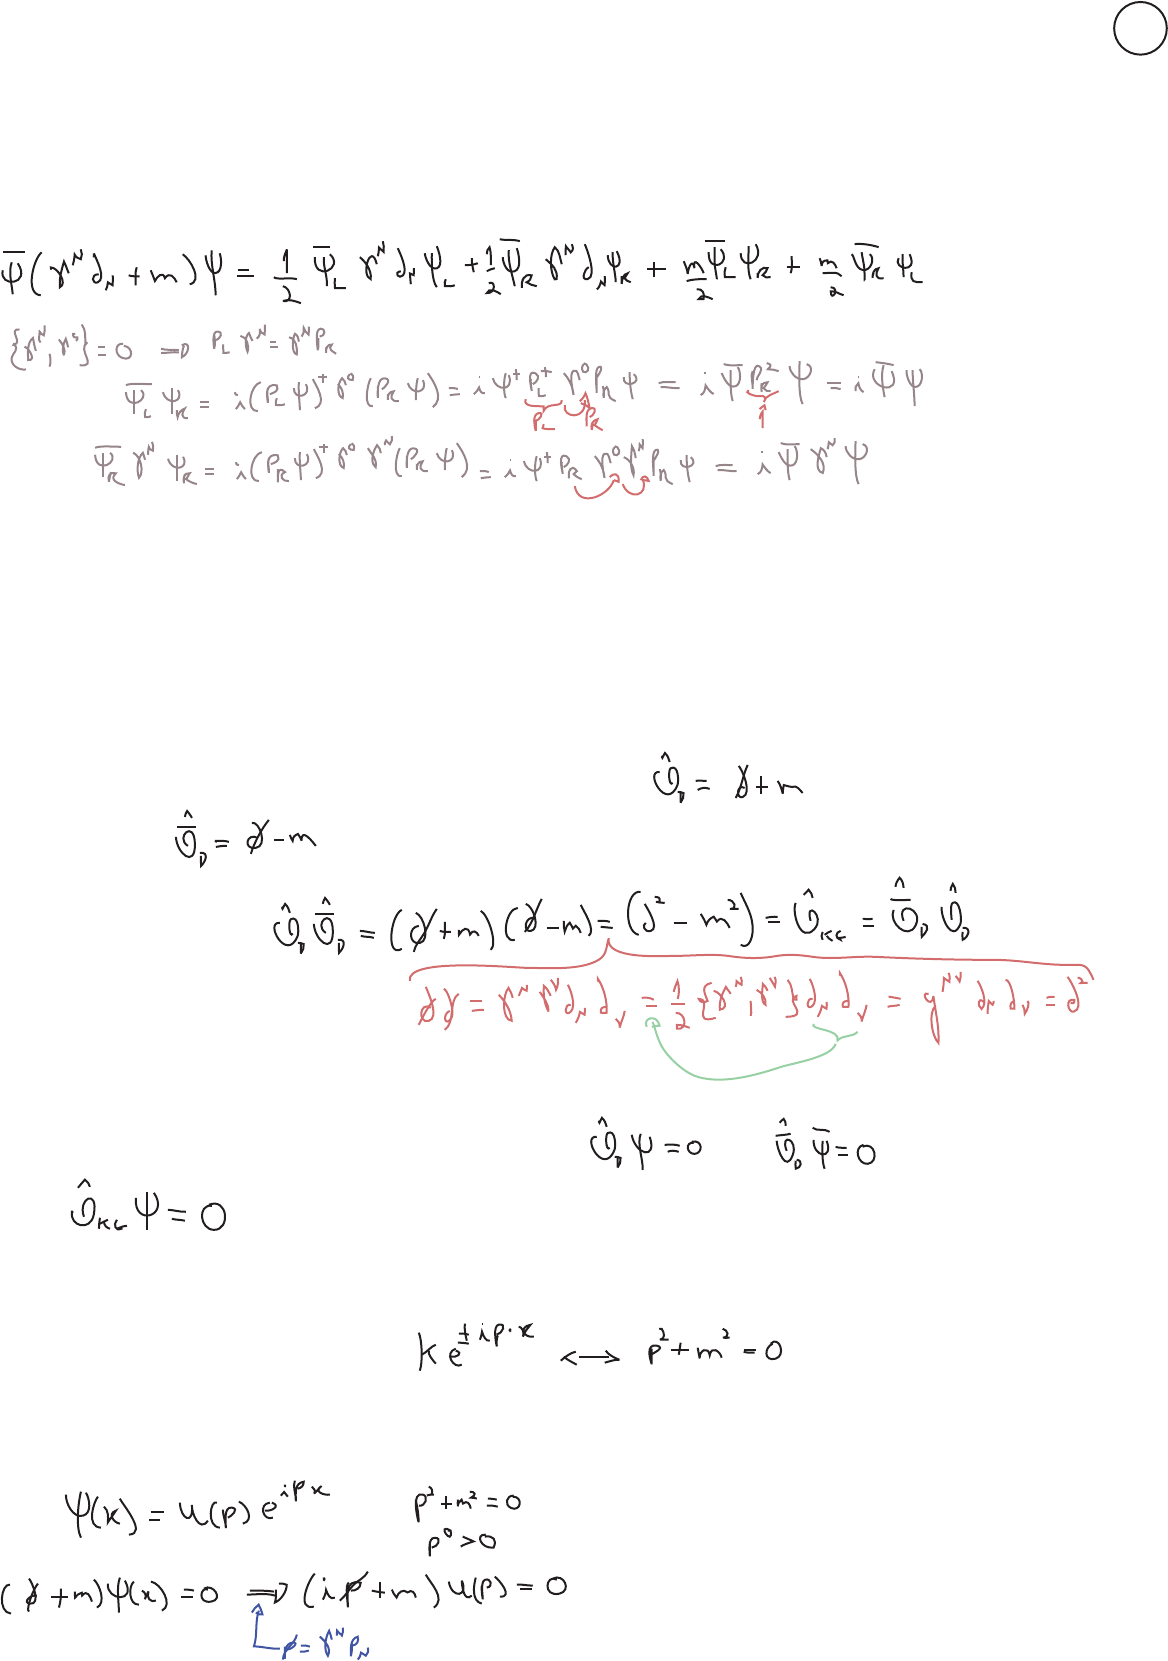 ψ̄(γ^μ ∂_μ + m)ψ = 1/2 ψ̄_L γ^μ ∂_μ ψ_L + 1/2 ψ̄_R γ^μ ∂_μ ψ_R + m/2 ψ̄_L ψ_R + m/2 ψ̄_R ψ_L
{γ^μ, γ^5} = 0 ⇒ P_L γ^μ = γ^μ P_R
ψ̄_L ψ_R = i(P_L ψ)^† γ^0 (P_R ψ) = i ψ^† P_L^† γ^0 P_R ψ = i ψ̄ P_R^2 ψ = i ψ̄ ψ
P_L P_R 1
ψ̄_R γ^μ ψ_R = i(P_R ψ)^† γ^0 γ^μ (P_R ψ) = i ψ^† P_R γ^0 γ^μ P_R ψ = i ψ̄ γ^μ ψ
Ô_D = ∂̸ + m
Ô̄_D = ∂̸ - m
Ô_D Ô̄_D = (∂̸ + m)(∂̸ - m) = (∂^2 - m^2) = Ô_KG = Ô̄_D Ô_D
∂̸ ∂̸ = γ^μ γ^ν ∂_μ ∂_ν = 1/2 {γ^μ, γ^ν} ∂_μ ∂_ν = g^{μν} ∂_μ ∂_ν = ∂^2
Ô_D ψ = 0 Ô̄_D ψ̄ = 0
Ô_KG ψ = 0
k e^{±ip·x} ↔ p^2 + m^2 = 0
ψ(x) = u(p) e^{ipx} p^2 + m^2 = 0
p^0 > 0
(∂̸ + m)ψ(x) = 0 ⇒ (i p̸ + m) u(p) = 0
p̸ = γ^μ p_μ